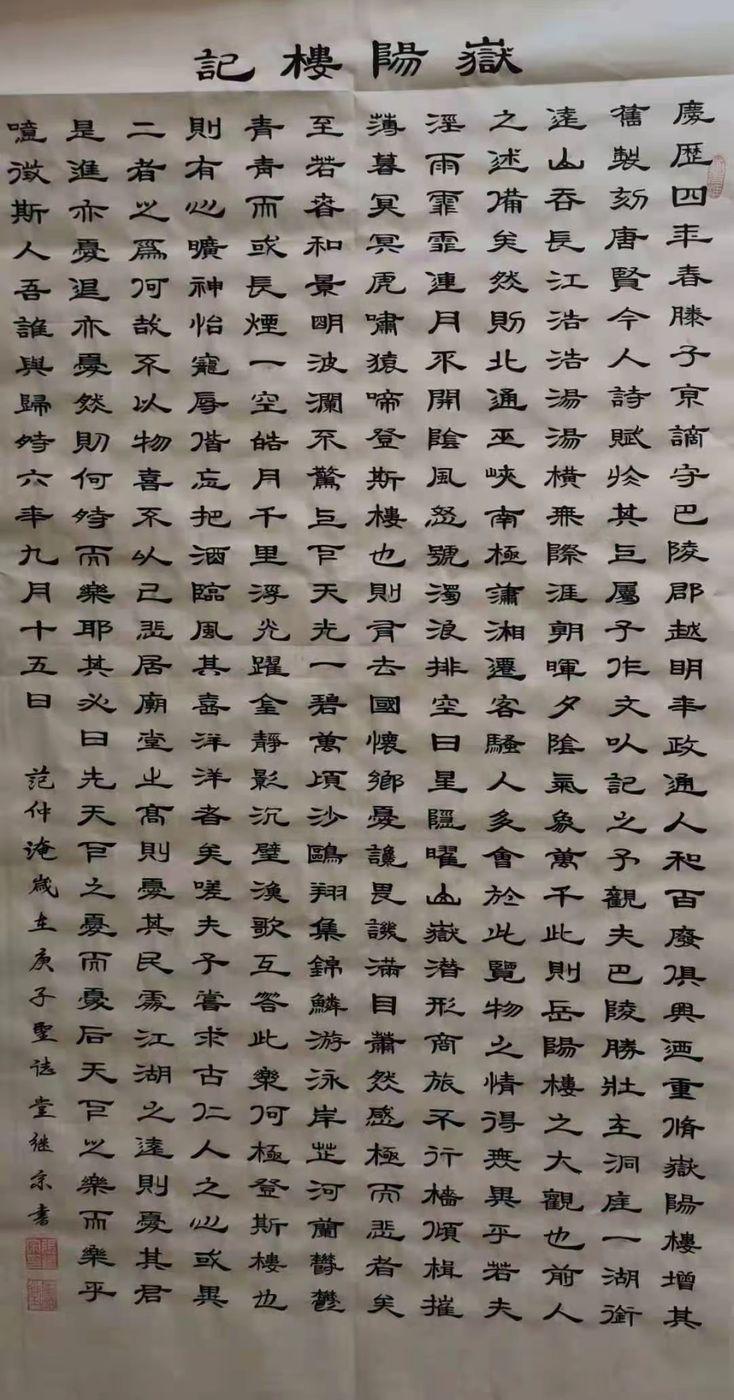 嶽陽樓記
慶歷四年春滕子京謫守巴陵郡越明年政通人和百廢俱興迺重脩嶽陽樓增其
舊製刻唐賢今人詩賦於其上屬予作文以記之予觀夫巴陵勝壯在洞庭一湖銜
遠山吞長江浩浩湯湯橫無際涯朝暉夕陰氣象萬千此則岳陽樓之大觀也前人
之述備矣然則北通巫峽南極瀟湘遷客騷人多會於此覽物之情得無異乎若夫
淫雨霏霏連月不開陰風怒號濁浪排空日星隱曜山嶽潛形商旅不行檣傾楫摧
薄暮冥冥虎嘯猿啼登斯樓也則有去國懷鄉憂讒畏譏滿目蕭然感極而悲者矣
至若春和景明波瀾不驚上下天光一碧萬頃沙鷗翔集錦鱗游泳岸芷河蘭鬱鬱
青青而或長煙一空皓月千里浮光躍金靜影沉璧漁歌互答此樂何極登斯樓也
則有心曠神怡寵辱偕忘把酒臨風其喜洋洋者矣嗟夫予嘗求古仁人之心或異
二者之爲何故不以物喜不以己悲居廟堂之高則憂其民處江湖之遠則憂其君
是進亦憂退亦憂然則何時而樂耶其必曰先天下之憂而憂后天下之樂而樂乎
噫微斯人吾誰與歸時六年九月十五日 范仲淹歲在庚子聖 堂继 書